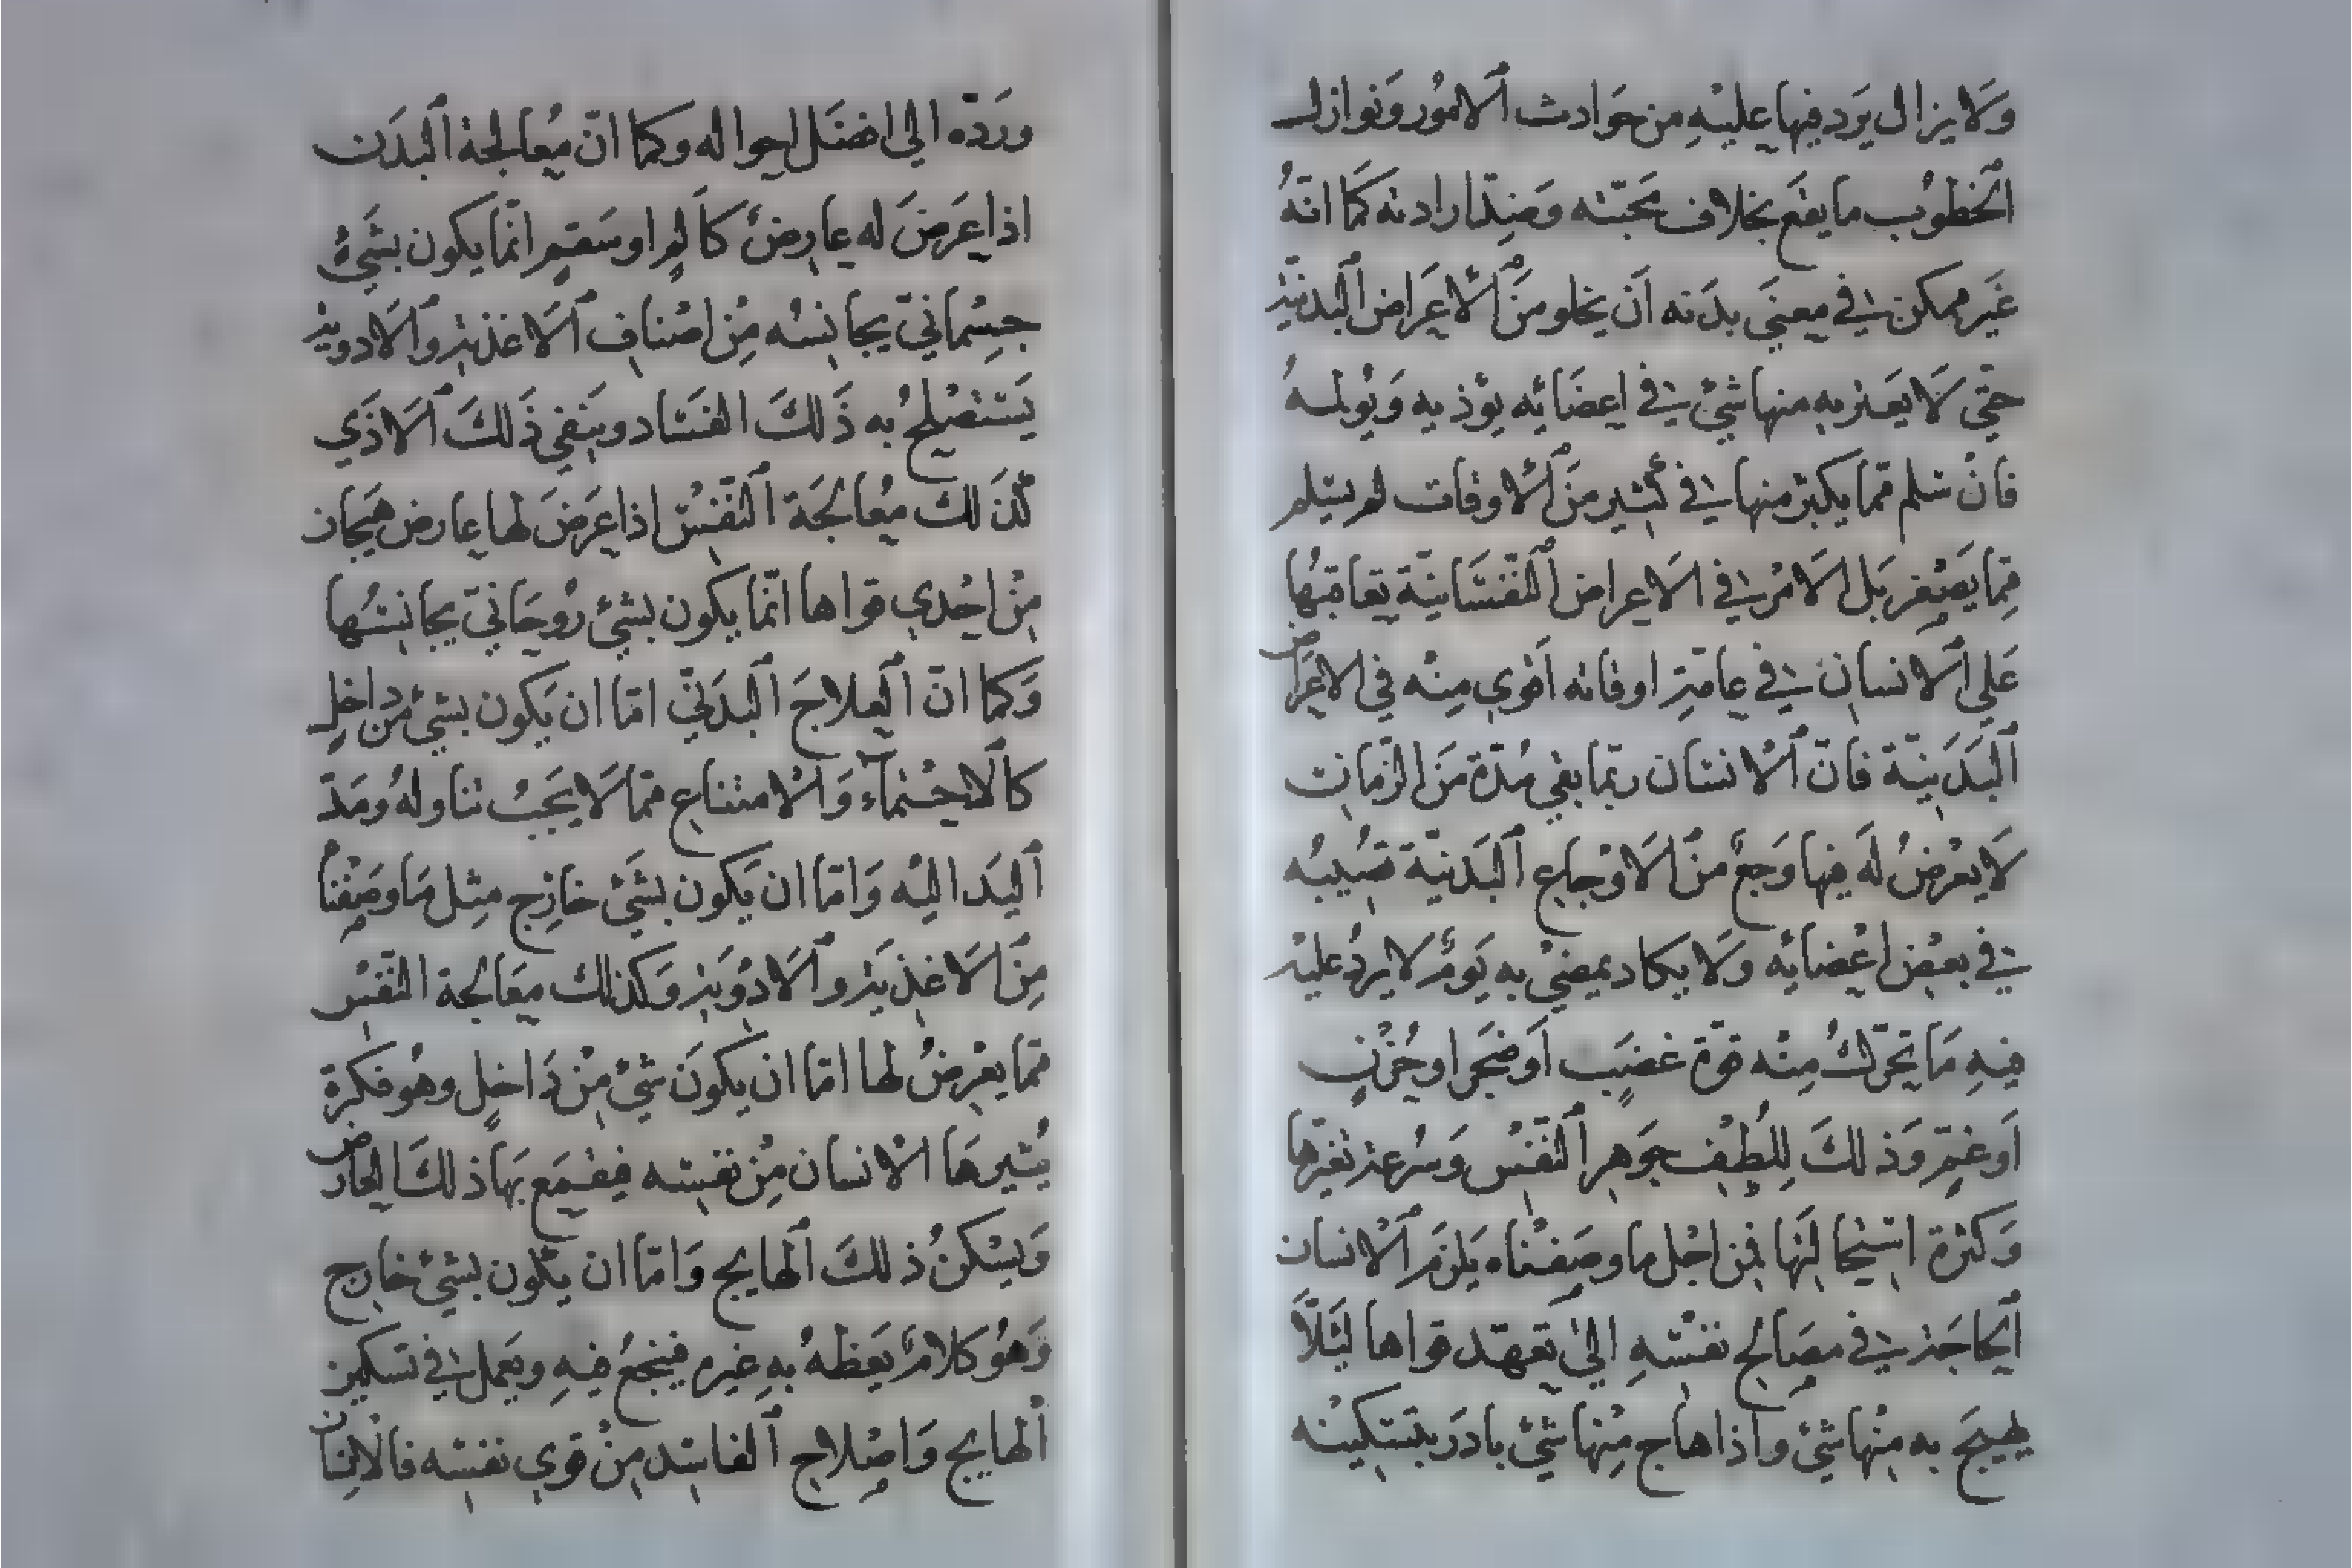 وَلَا يزال يَرد فيها عليْهِ من حَوادث ٱلامُور وَنوازل
ٱلخطوُب ما يقَع بخلاف مَحَبّته وَضِدّ ارادته كَمَا انّهُ
غَير ممكن في معنَى بدَنه اَن يخلو منَ ٱلاَعَراض ٱلبدنيّة
حتّى لَا يعَتريه منها شيْءٌ في اعضَائه يؤذيه وَيُولمهُ
فانْ سَلم ممّا يكبرْ منها في كَثير منَ ٱلاوقات لم يسَلم
مِمّا يَصْغِر بَل الَامْر في الَاعراض ٱلنّفسَانيّة يعاقبُها
عَلي ٱلانسان في عامّةِ اوقاته اَقوي مِنْه في الاعرَاض
ٱلبَدَنيّة فانّ ٱلْانسان ربّما بقي مُدّة منَ الزّمان
لَا يعْرضُ لَه فيها وَجعٌ منَ ٱلَاوْجاع ٱلبَدنيّة تصُيبُه
في بعْض اعْضائه وَلَا يكاد يمضيْ به يَومٌ لا يردُ عليْه
فيهِ مَا يحَرّكُ مِنْه قوّة غضبٍ اَو ضجَر او حُزْنٍ
اَو غمٍّ وَذلكَ لِلُطفِ جَوهر ٱلنّفْس وَسُرعة تغيّرها
وَكثرة استْحالَتها فمن اجْل ما وصَفْناه يَلزمَ ٱلْانسان
ٱلحاجَة في مصَالح نفسْهِ اليٰ تَعهّد قواها لئَلّاَ
يهيجَ به منْها شيْءٌ واذا هاج مِنْها شيْءٌ بادَرَ بتسَكيْنه
وردّه الي افضَل احواله وكما انّ مُعالجة ٱلبدَن
اذا عَرَضَ له عارضٌ كاَلمٍ او سَقمٍ انّما يكون بشَيْءٌ
جسِْمانيّ يجانسُه مِنْ اصْناف ٱلاَغذية وٱلاَدوية
يَستصْلحُ به ذَلكَ الفسَاد وينَفي ذَلكَ ٱلَاذَي
كَذَلكَ مُعالجَة ٱلنّفسْ اذا عَرَضَ لها عارض هَيجان
مِنْ احْدي قواها انّما يكون بشيْء رُوحَانيّ يجانسُها
وَكما انّ ٱلعلاجَ ٱلبدَنيّ امّا ان يَكون بشيْء من داخلٍ
كاَلاحتْماَء وَالْامتناع ممّا لَا يجَبُ تناولهُ ومَدّ
ٱليَد اليْه وَامّا ان يَكون بشَيْءٌ خارِج مِثل مَا وصَفْناُ
مِنَ ٱلَاغذيَة وٱلَادْوَية وَكذلك معَالجة النّفسْ
ممّا يعْرضُ لها امّا ان يكونَ شيْء مِنْ دَاخلٍ وهُو فكرَة
يُثيرهَا ٱلانسان مِنْ نفسِه فيقمَع بَها ذلكَ العارض
وَيسْكنُ ذلكَ ٱلهايج وَامّا ان يَكون بشيْءٌ خارج
وَهُو كلامٌ يَعَظهُ بهِ غيره فينجعُ فيهِ ويعَمل في تسَكين
ٱلهايج وَاصْلاحِ ٱلفاسَد مِنْ قوي نفسْه فالانسان